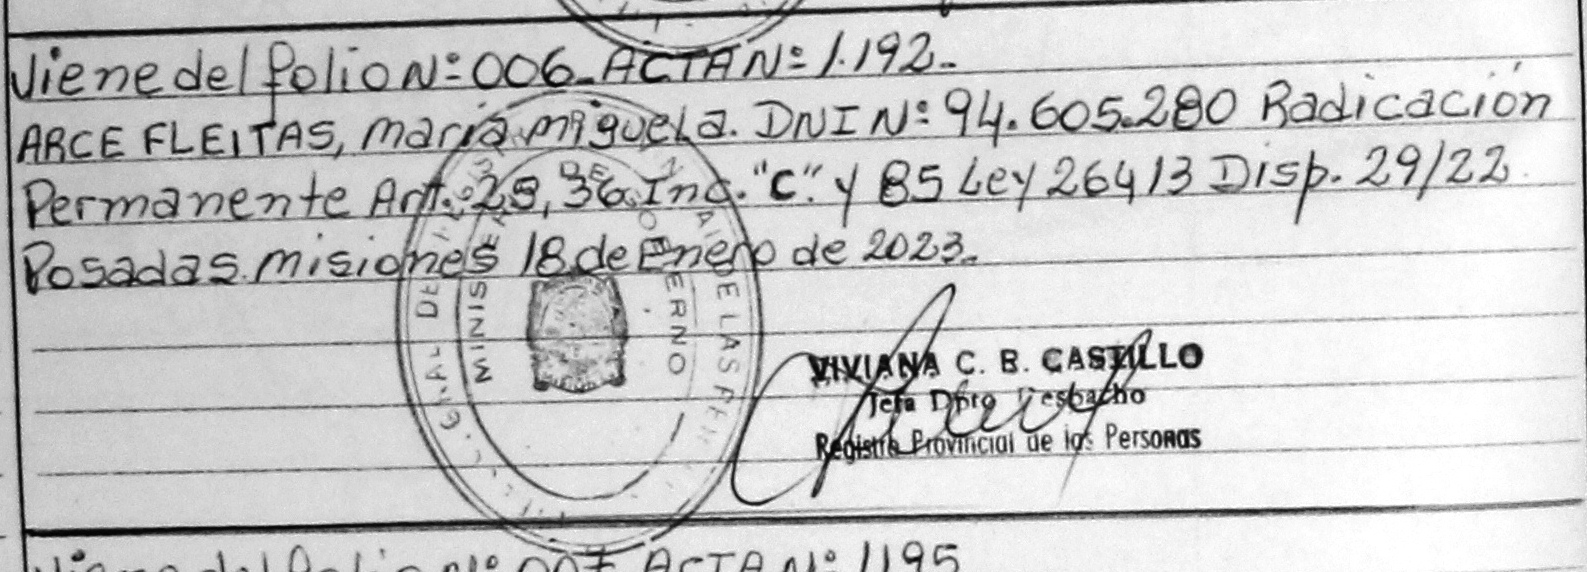 Viene del folio Nº: 006_ ACTA Nº: 1.192_
ARCE FLEITAS, maria miguela. DNI Nº: 94.605.280 Radicación
Permanente Art. 36 Inc. "C". y 85 Ley 26413 Disp. 29/22.
Posadas. misiones 18 de Enero de 2023.
VIVIANA C. B. CASTILLO
Jefa Dpto Despacho
Registro Provincial de las Personas
Viene del folio Nº 007 ACTA Nº: 1195